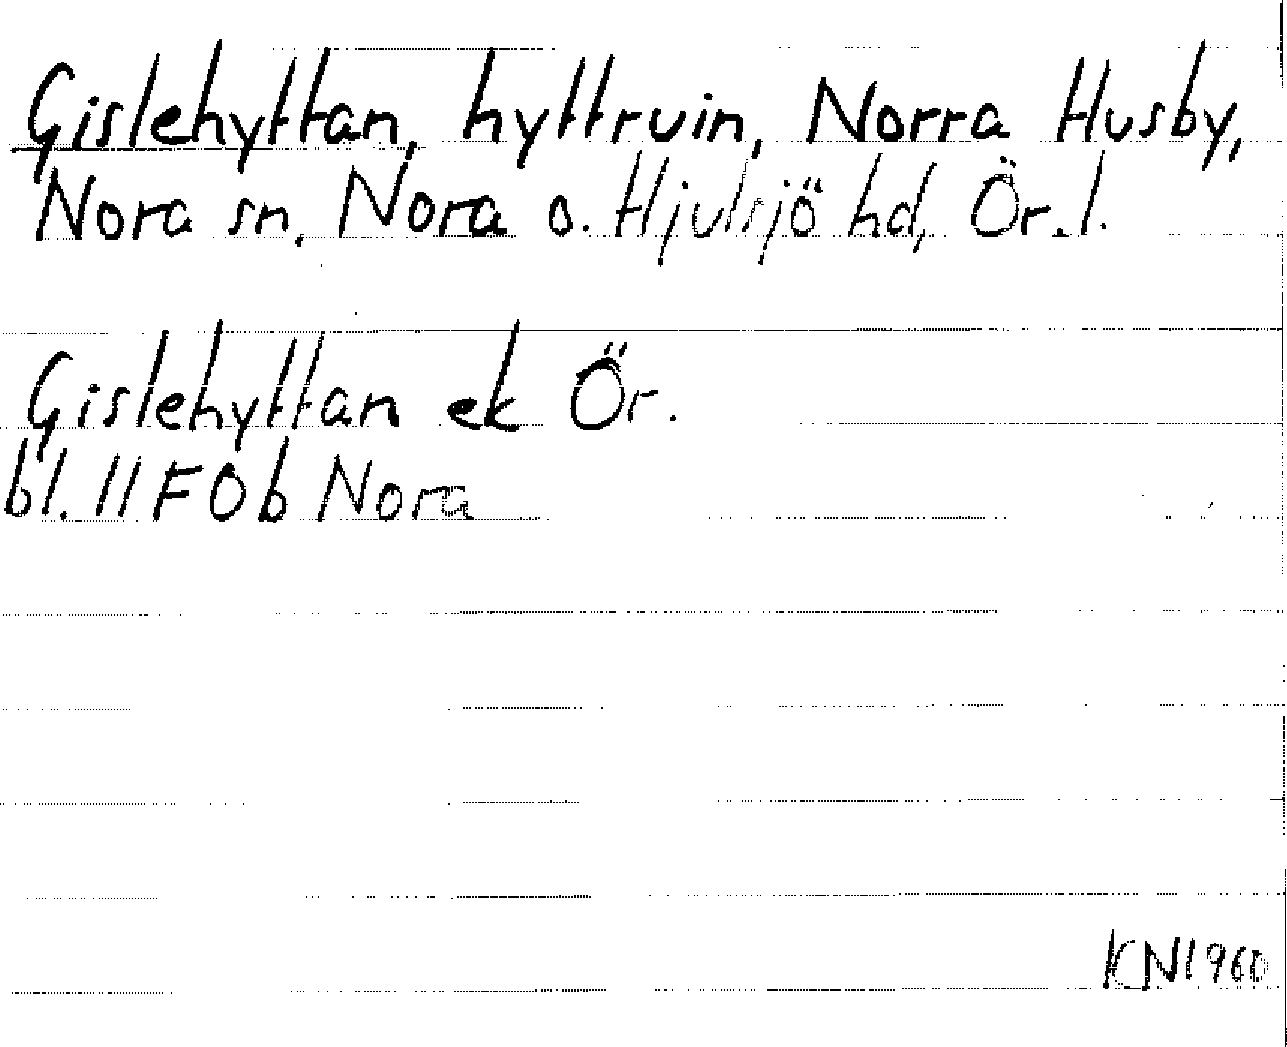 Gislehyttan, hyttruin, Norra Husby,
Nora sn, Nora o. Hjulsjö hd, Ör. l.
Gislehyttan ek Ör.
bl. 11F0b Nora
KN1960